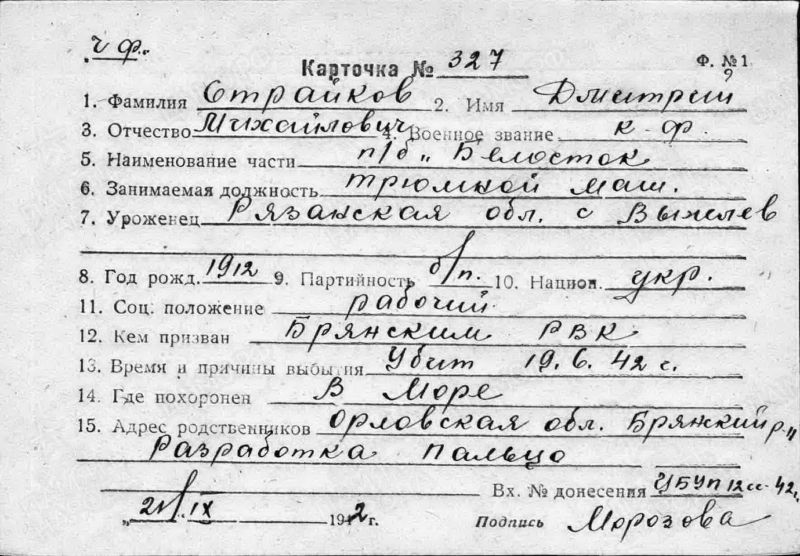 ч.ф.
Карточка № 327 Ф. №1
9
1. Фамилия Страйков 2. Имя Дмитрий
3. Отчество Михайлович 4. Военное звание к-ф.
5. Наименование части п/б „Белосток
6. Занимаемая должность трюмной маш.
7. Уроженец Рязанская обл. с Выселев
8. Год рожд. 1912 9. Партийность б/п. 10. Национ. укр.
11. Соц. положение рабочий
12. Кем призван Брянским РВК
13. Время и причины выбытия Убит 19.6.42 г.
14. Где похоронен В Море
15. Адрес родственников Орловская обл. Брянкий р."
Разработка Пальцо
Вх. № донесения 42г.
„21" IX 1942г. Подпись Морозова